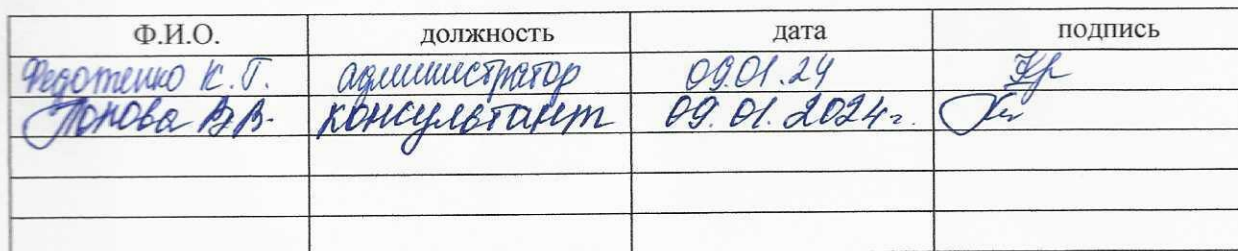 Ф.И.О. должность дата подпись
Федотенко К.Г. администратор 09.01.24
Попова В.В. консультант 09.01.2024г.